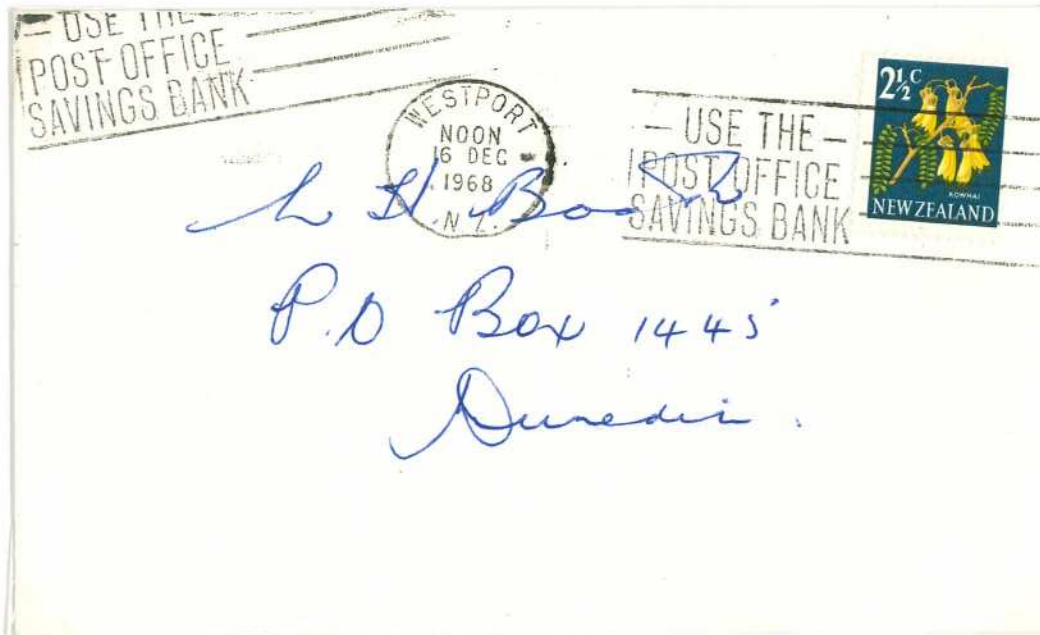 — USE THE
POST OFFICE
SAVINGS BANK
WESTPORT
NOON
16 DEC
1968
N.Z.
— USE THE —
POST OFFICE
SAVINGS BANK
2½c
KOWHAI
NEW ZEALAND
L H Booth
P.O Box 1445
Dunedin.